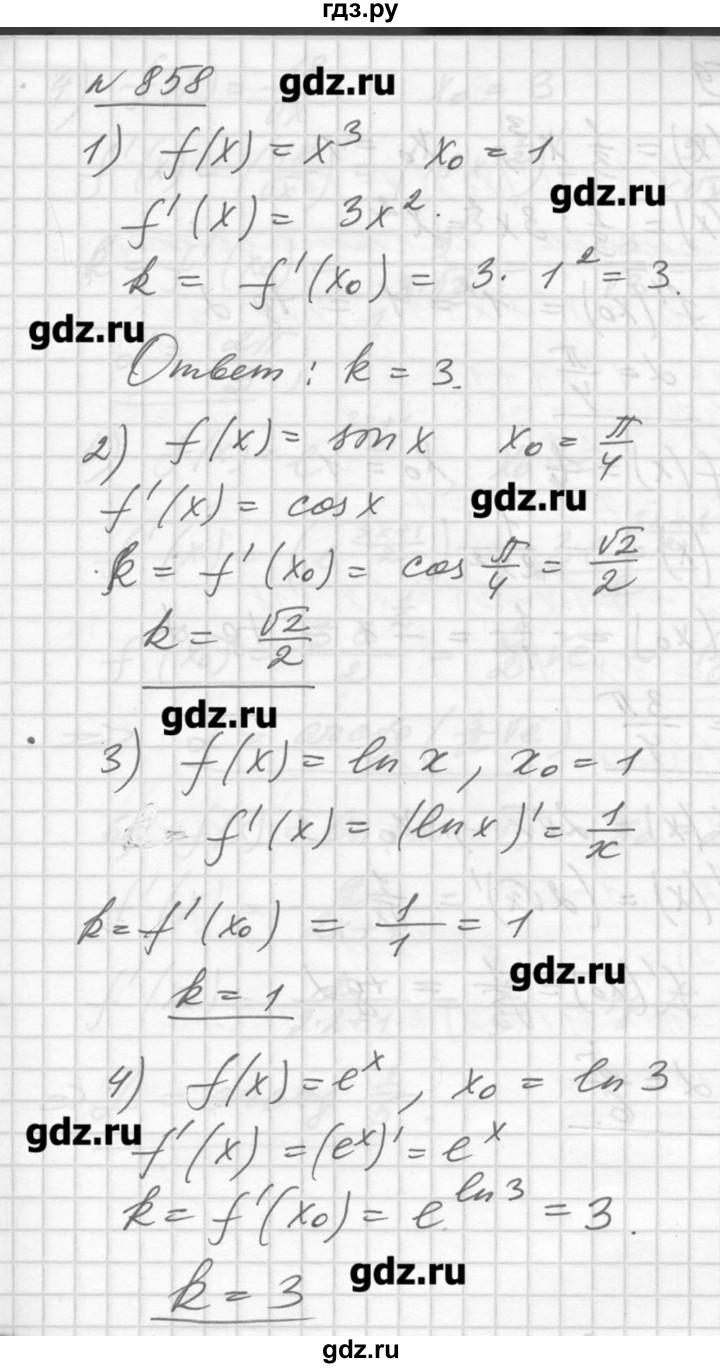 гдз.ру
№ 858 gdz.ru
1) f(x) = x³ x₀ = 1
gdz.ru
f'(x) = 3x².
k = f'(x₀) = 3 · 1² = 3.
gdz.ru
Ответ: k = 3.
2) f(x) = sin x x₀ = π/4
f'(x) = cos x gdz.ru
k = f'(x₀) = cos π/4 = √2/2
k = √2/2
gdz.ru
3) f(x) = ln x, x₀ = 1
= f'(x) = (ln x)' = 1/x
k = f'(x₀) = 1/1 = 1
gdz.ru
k = 1
4) f(x) = eˣ, x₀ = ln 3
gdz.ru
f'(x) = (eˣ)' = eˣ
k = f'(x₀) = e^(ln 3) = 3.
k = 3 gdz.ru
gdz.ru